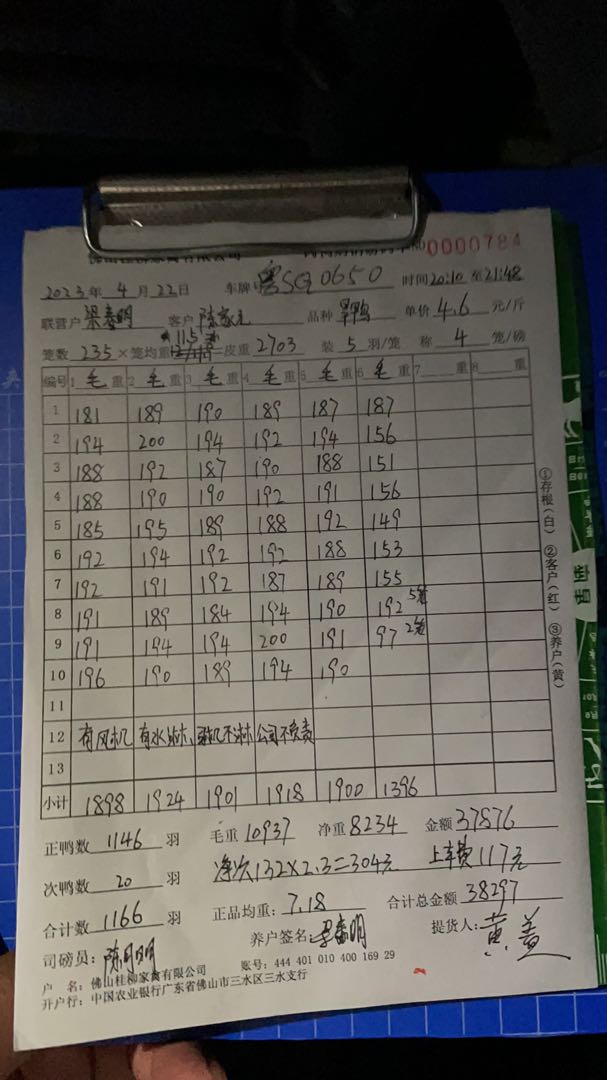 0000784
2023年 4月 22日 车牌 粤SQ0650 时间20:10 至21:48
联营户 梁泰明 客户 陈家元 品种 旱鸭 单价 4.6 元/斤
笼数 235 ×笼均重 11.5 =皮重 2703 装 5 羽/笼 称 4 笼/磅
编号 1 毛 重 2 毛 重 3 毛 重 4 毛 重 5 毛 重 6 毛 重 7 重 8 重
1 181 189 190 189 187 187
2 194 200 194 192 194 156
3 188 192 187 190 188 151
4 188 190 190 192 191 156
5 185 195 189 188 192 149
6 192 194 192 192 188 153
7 192 191 192 187 189 155
8 191 189 184 194 190 192 5笼
9 191 194 194 200 191 97 2笼
10 196 190 189 194 190
11
12 有风机 有水淋、 不淋 公司不负责
13
小计 1898 1924 1901 1918 1900 1396
①存根(白) ②客户(红) ③养户(黄)
正鸭数 1146 羽 毛重 10937 净重 8234 金额 37876
次鸭数 20 羽 净次132×2.3=304元 上车费117元
合计数 1166 羽 正品均重: 7.18 合计总金额 38297
司磅员: 陈明明 养户签名: 梁泰明 提货人: 黄盖
户 名: 佛山桂柳家禽有限公司 账号: 444 401 010 400 169 29
开户行: 中国农业银行广东省佛山市三水区三水支行